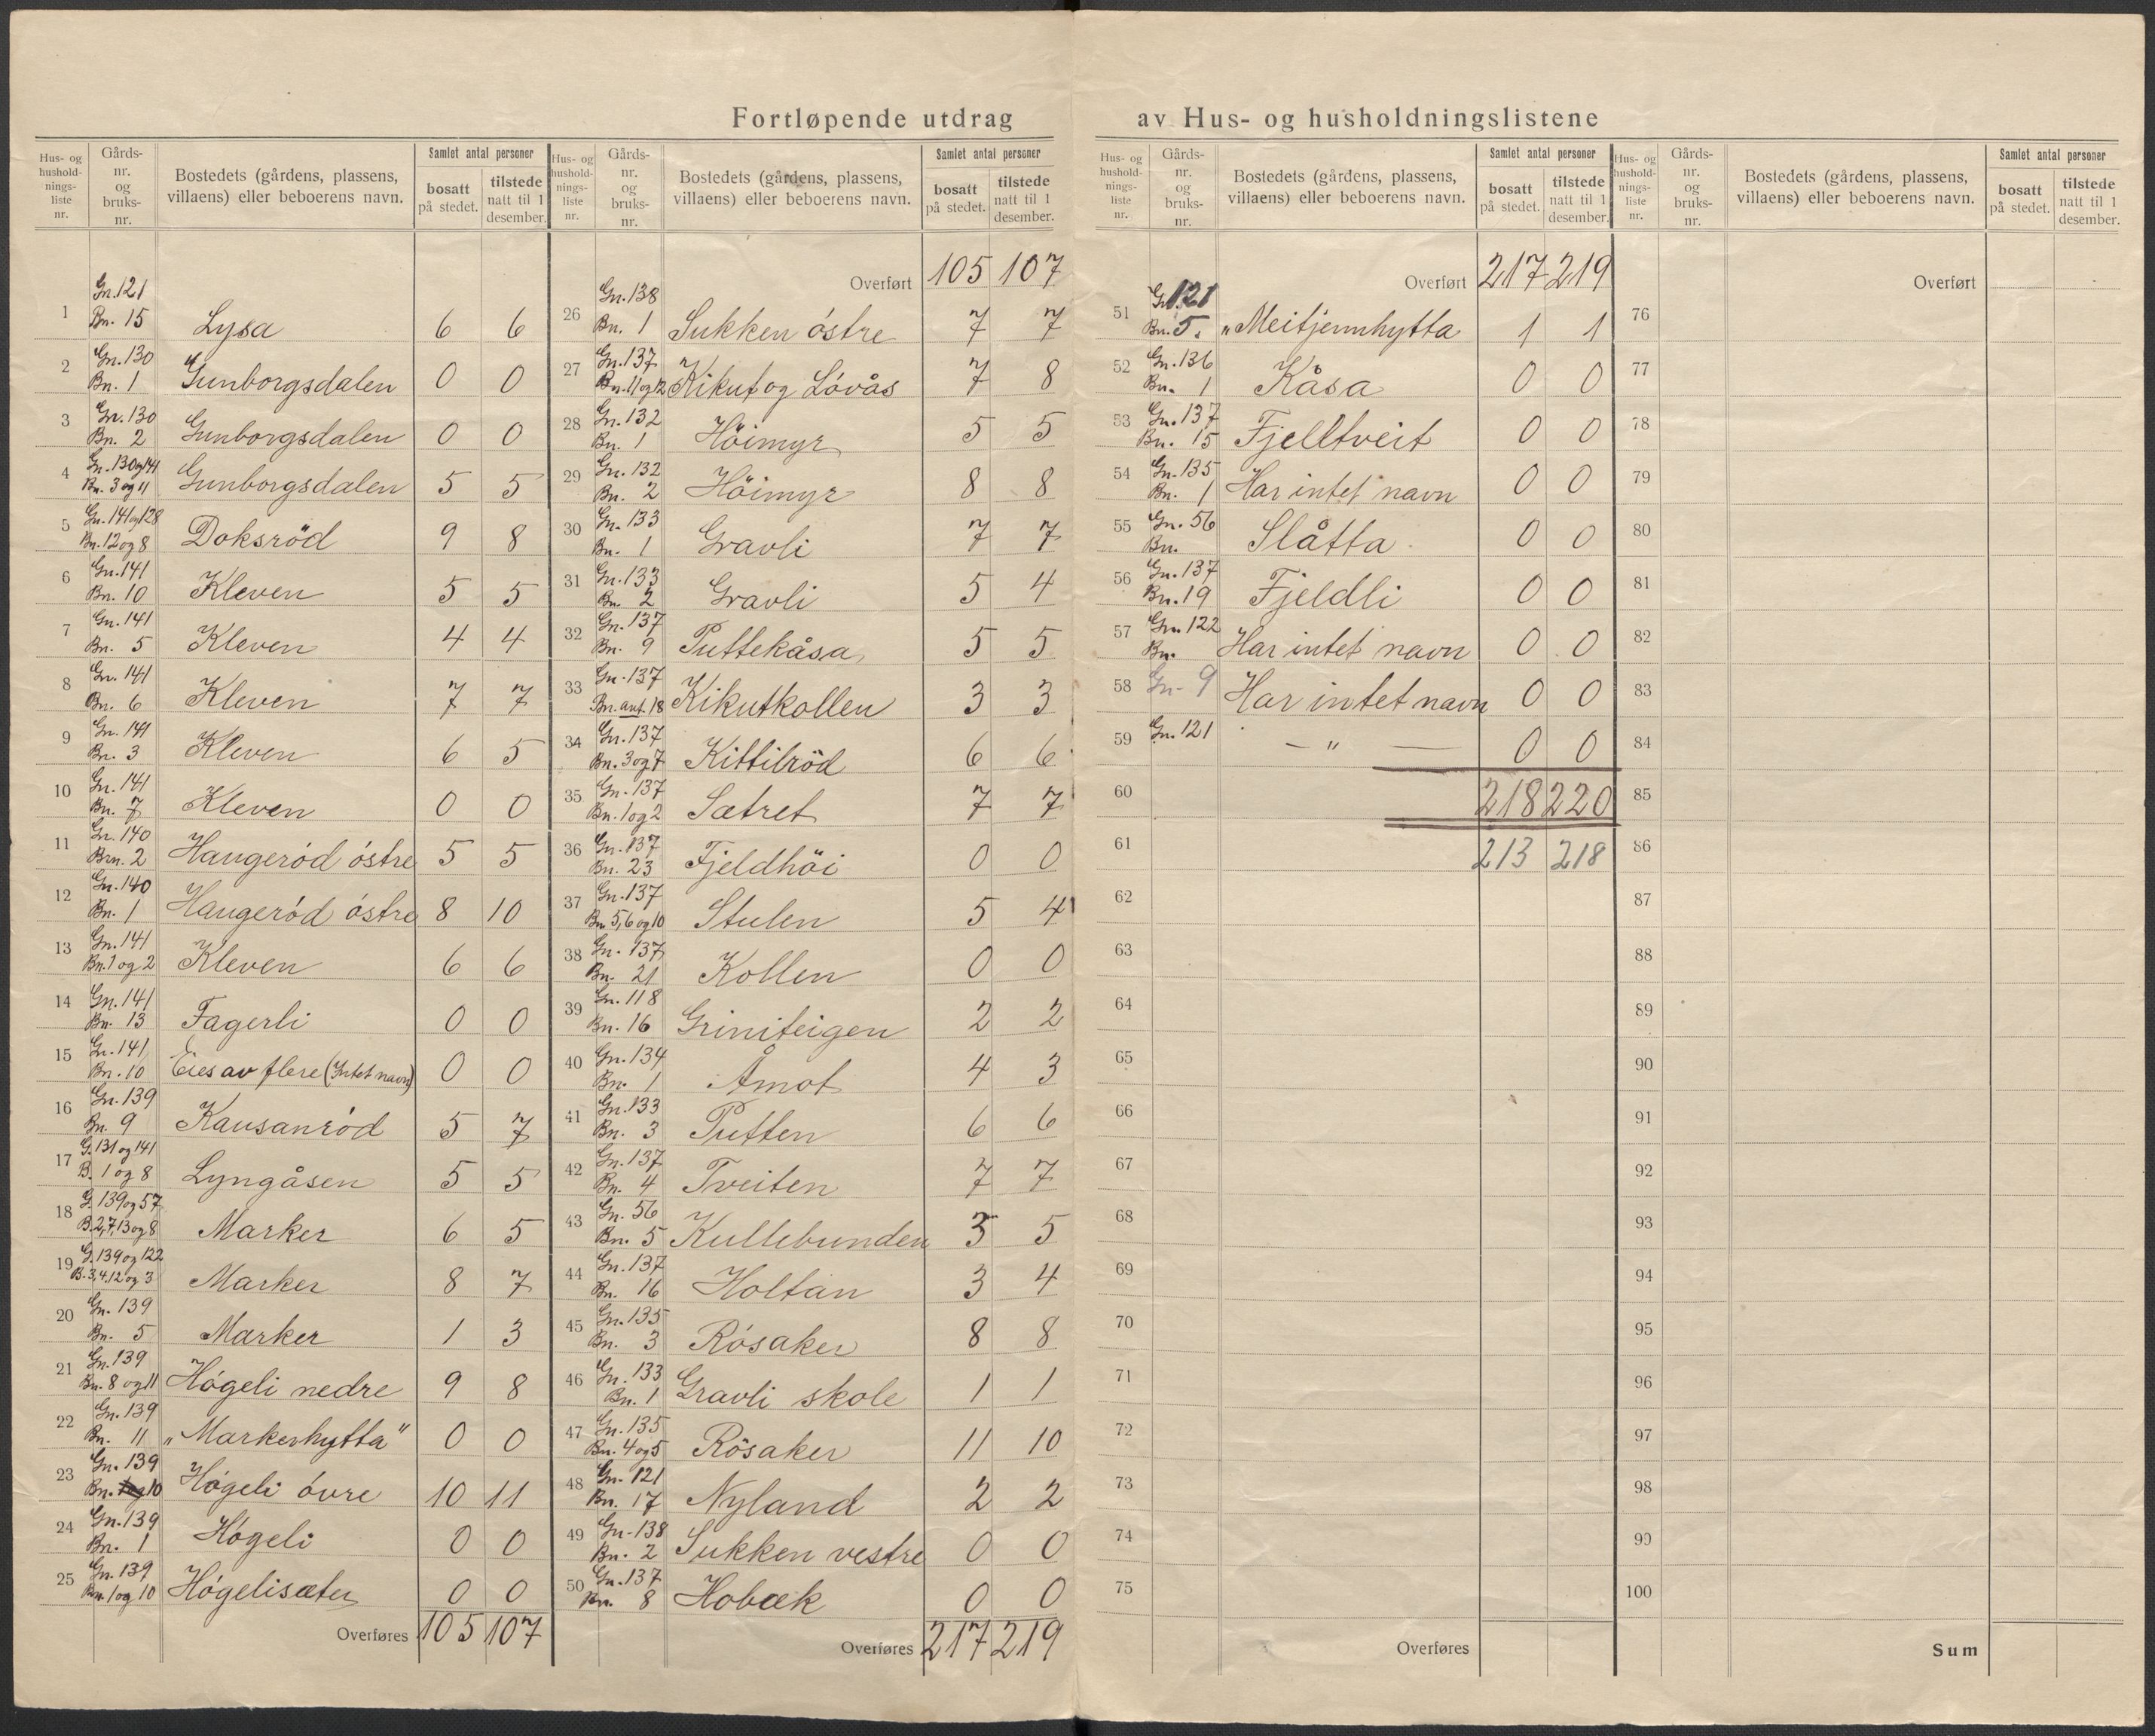 Fortløpende utdrag av Hus- og husholdningslistene
Hus- og husholdnings-liste nr. | Gårds-nr. og bruks-nr. | Bostedets (gårdens, plassens, villaens) eller beboerens navn. | Samlet antal personer | bosatt på stedet. | tilstede natt til 1 desember.
1 Gn. 121 Bn. 15 Lysa 6 6
2 Gn. 130 Bn. 1 Gunborgsdalen 0 0
3 Gn. 130 Bn. 2 Gunborgsdalen 0 0
4 Gn. 130 og 141 Bn. 3 og 11 Gunborgsdalen 5 5
5 Gn. 141 og 128 Bn. 12 og 8 Doksröd 9 8
6 Gn. 141 Bn. 10 Kleven 5 5
7 Gn. 141 Bn. 5 Kleven 4 4
8 Gn. 141 Bn. 6 Kleven 7 7
9 Gn. 141 Bn. 3 Kleven 6 5
10 Gn. 141 Bn. 7 Kleven 0 0
11 Gn. 140 Bn. 2 Haugeród óstre 5 5
12 Gn. 140 Bn. 1 Haugeród óstre 8 10
13 Gn. 141 Bn. 1 og 2 Kleven 6 6
14 Gn. 141 Bn. 13 Fagerli 0 0
15 Gn. 141 Bn. 10 Eies av flere (Intet navn) 0 0
16 Gn. 139 Bn. 9 Kausanród 5 7
17 G. 131 og 141 B. 1 og 8 Lyngåsen 5 5
18 G. 139 og 57 B. 2, 7, 13 og 8 Marker 6 5
19 G. 139 og 122 B. 3, 4, 12 og 3 Marker 8 7
20 Gn. 139 Bn. 5 Marker 1 3
21 Gn. 139 Bn. 8 og 11 Hógeli nedre 9 8
22 Gn. 139 Bn. 11 „Markerhytta" 0 0
23 Gn. 139 Bn. 10 Hógeli óvre 10 11
24 Gn. 139 Bn. 1 Hógeli 0 0
25 Gn. 139 Bn. 1 og 10 Hógelisæter 0 0
Overføres 105 107
Hus- og husholdnings-liste nr. | Gårds-nr. og bruks-nr. | Bostedets (gårdens, plassens, villaens) eller beboerens navn. | Samlet antal personer | bosatt på stedet. | tilstede natt til 1 desember.
Overført 105 107
26 Gn. 138 Bn. 1 Sukken óstre 7 7
27 Gn. 137 Bn. 11 og 12 Kikut og Lóvås 7 8
28 Gn. 132 Bn. 1 Höimyr 5 5
29 Gn. 132 Bn. 2 Höimyr 8 8
30 Gn. 133 Bn. 1 Gravli 7 7
31 Gn. 133 Bn. 2 Gravli 5 4
32 Gn. 137 Bn. 9 Puttekåsa 5 5
33 Gn. 137 Bn. ant. 18 Kikutkollen 3 3
34 Gn. 137 Bn. 3 og 7 Kittilröd 6 6
35 Gn. 137 Bn. 1 og 2 Sætret 7 7
36 Gn. 137 Bn. 23 Fjeldhöi 0 0
37 Gn. 137 Bn. 5, 6 og 10 Stulen 5 4
38 Gn. 137 Bn. 21 Kollen 0 0
39 Gn. 118 Bn. 16 Griniteigen 2 2
40 Gn. 134 Bn. 1 Åmot 4 3
41 Gn. 133 Bn. 3 Putten 6 6
42 Gn. 137 Bn. 4 Tveiten 7 7
43 Gn. 56 Bn. 5 Kullebunden 3 5
44 Gn. 137 Bn. 16 Holtan 3 4
45 Gn. 135 Bn. 3 Rósaker 8 8
46 Gn. 133 Bn. 1 Gravli skole 1 1
47 Gn. 135 Bn. 4 og 5 Rösaker 11 10
48 Gn. 121 Bn. 17 Nyland 2 2
49 Gn. 138 Bn. 2 Sukken vestre 0 0
50 Gn. 137 Bn. 8 Hobæk 0 0
Overføres 217 219
Hus- og husholdnings-liste nr. | Gårds-nr. og bruks-nr. | Bostedets (gårdens, plassens, villaens) eller beboerens navn. | Samlet antal personer | bosatt på stedet. | tilstede natt til 1 desember.
Overført 217 219
51 Gn. 121 Bn. 5. „Meitjennhytta 1 1
52 Gn. 136 Bn. 1 Kåsa 0 0
53 Gn. 137 Bn. 15 Fjelltveit 0 0
54 Gn. 135 Bn. 1 Har intet navn 0 0
55 Gn. 56 Bn. Slåtta 0 0
56 Gn. 137 Bn. 19 Fjeldli 0 0
57 Gn. 122 Bn. Har intet navn 0 0
58 Gn. 9 Har intet navn 0 0
59 Gn. 121 — " — 0 0
60 218 220
61 213 218
62
63
64
65
66
67
68
69
70
71
72
73
74
75
Overføres
Hus- og husholdnings-liste nr. | Gårds-nr. og bruks-nr. | Bostedets (gårdens, plassens, villaens) eller beboerens navn. | Samlet antal personer | bosatt på stedet. | tilstede natt til 1 desember.
Overført
76
77
78
79
80
81
82
83
84
85
86
87
88
89
90
91
92
93
94
95
96
97
98
99
100
Sum